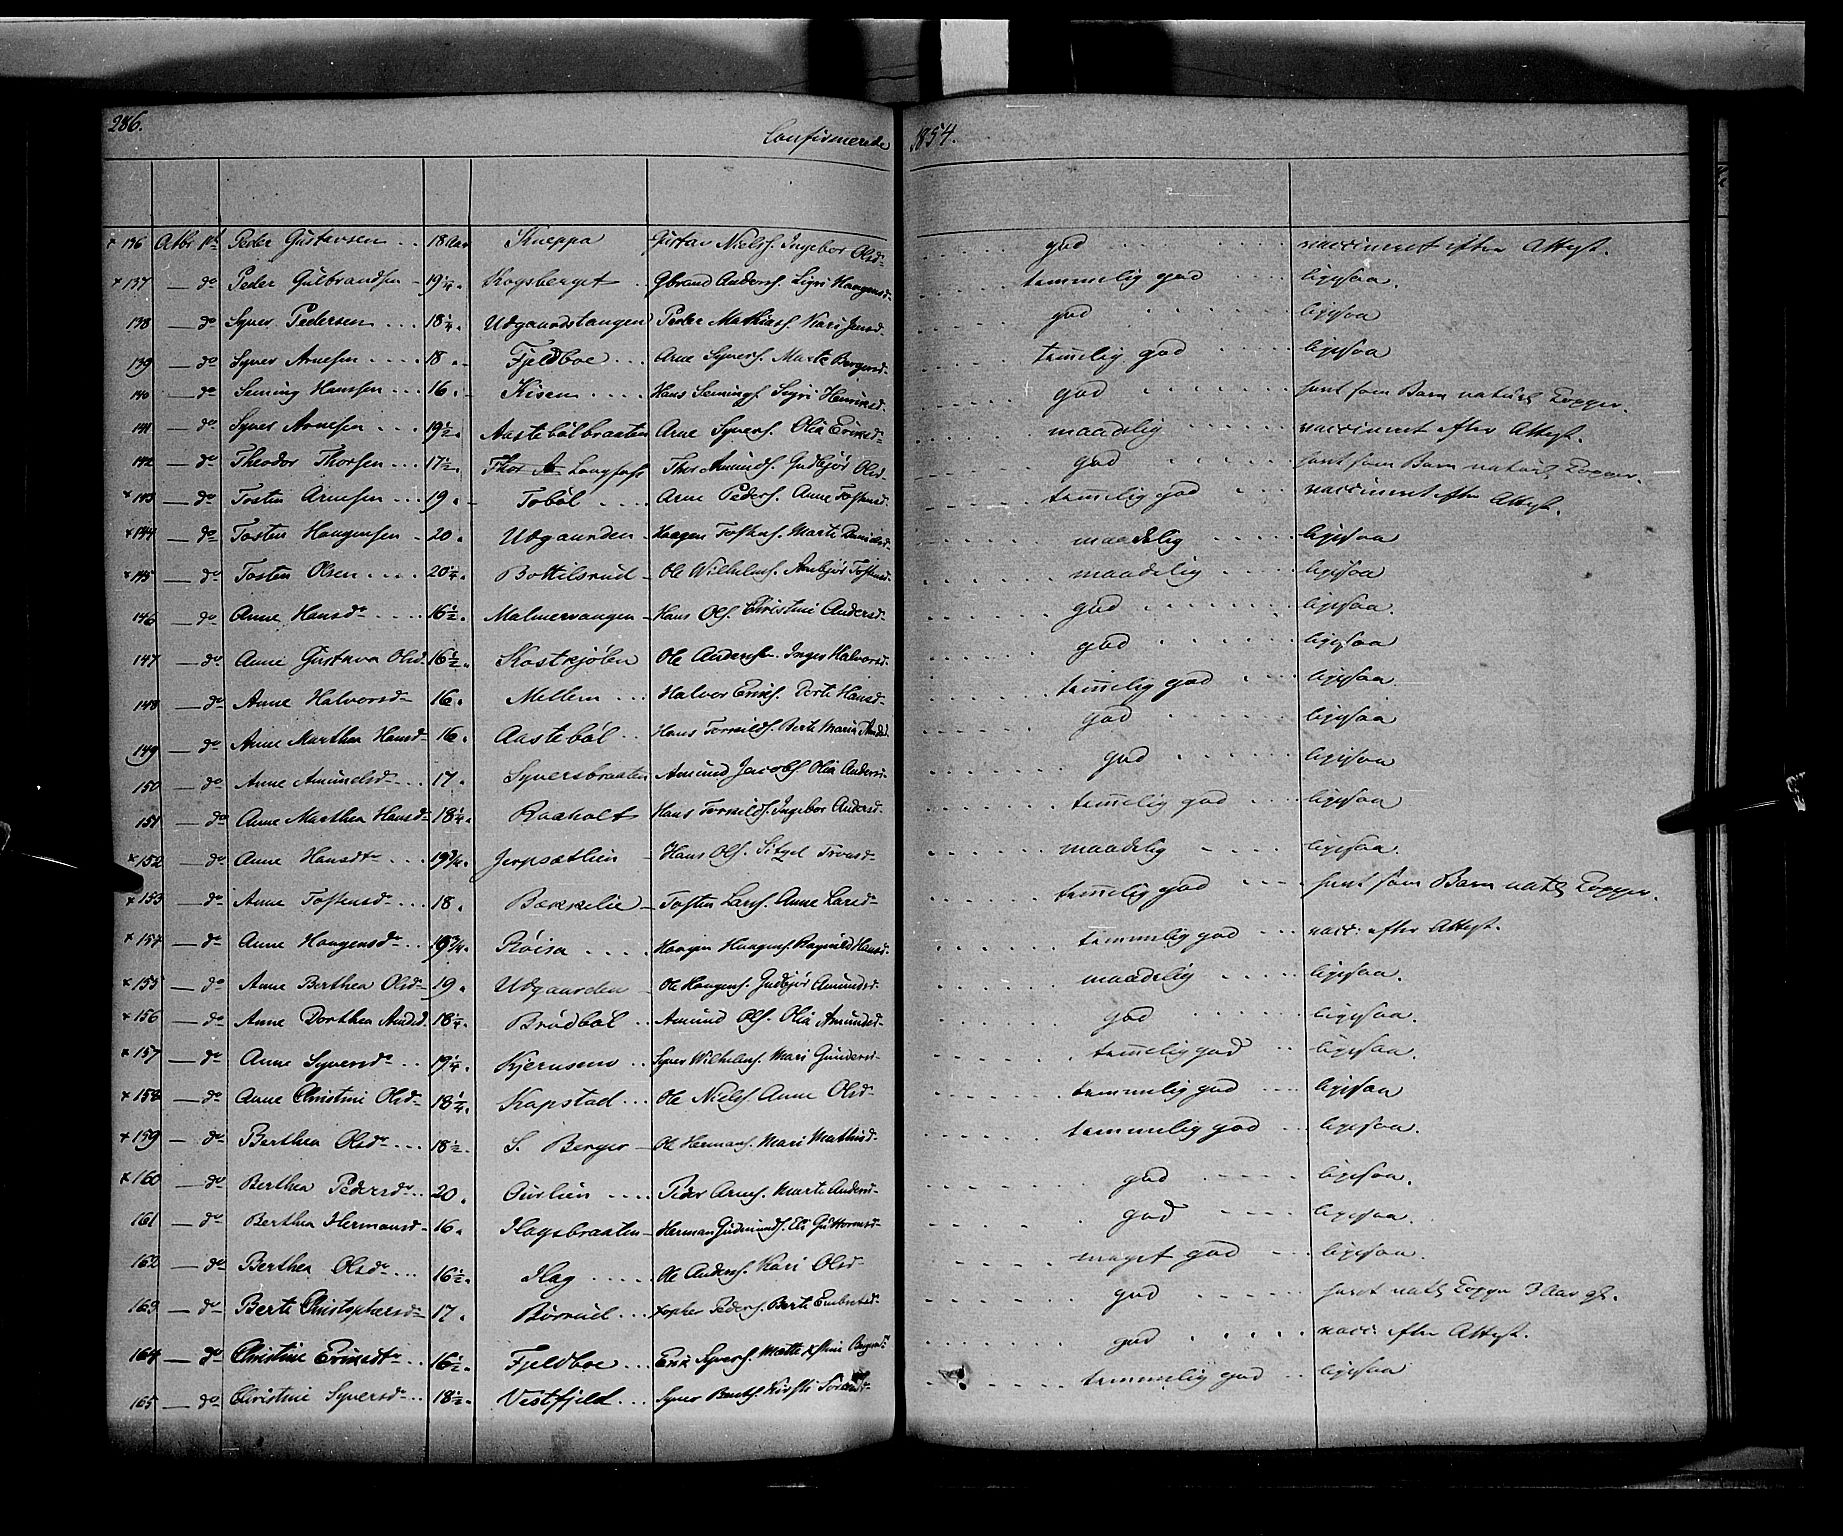 286.
Confirmerede
1854.
× 136 Peder Gustavsen .. 18 Aar Kneppa Gustav Niels. Ingebor Olsd. god vaccineret efter Attest.
× 137 — do Peder Gulbrandsen - 19 1/4. Kogsberget . Gbrand Anders. Sigri Haagensd. temmelig god ligesaa.
138 — do Syver Pedersen ... 18 1/4. Udgaardstangen Peder Mathias. Kari Jensd. god ligesaa
139 — do Syver Arnesen .... 18 . Fjeldboe ... Arne Syvers. Marte Bergersd. temelig god ligesaa
140 — do Seming Hanssen ... 16 . Kisen .... Hans Semings. Sigri Henriksd. god havt som Barn naturl. Kopper.
141 — do Syver Arnesen ... 19 1/2. Aastebölbraaten Arne Syvers. Olia Eriksd. maadelig vaccineret efter Attest.
142 — do Theodor Thorsen ... 17 1/2. Thor Amunds. Gudbjör Olsd. god havt som Barn naturl. Kopper.
× 143 — do Tosten Arnesen ... 19 . Toböl .... Arne Peders. Anne Tostensd. temelig god vaccineret efter Attest.
× 144 — do Tosten Haagensen - 20 . Udgaarden - Haagen Tostens. Marte maadelig ligesaa
× 145 — do Tosten Olsen .... 20 1/4. Bottilsrud - Ole Wilhelms. Anebjör Tostensd. maadelig ligesaa
146 — do Anne Hansd. ..... 16 1/2. Malmervangen - Hans Ols. Christine Andersd. god ligesaa.
147 — do Anne Gustava Olsd. 16 1/2. Kostkjölen Ole Andersen. Inger Halvorsd. god ligesaa.
148 — do Anne Halvorsd. 16 . Mellem ... Halvor Eriks. Dorte Hansd. temelig god ligesaa.
149 — do Anne Marthea Hansd. 16 . Aasteböl .. Hans Tomilds. Berte Marie god ligesaa
150 — do Anne Amundsd. 17 . Syversbraaten Amund Jacobs. Olia Andersd. god ligesaa
151 — do Anne Marthea Hansd. 18 1/4. Raaholt Hans Tomilds. Ingebor Andersd. temelig god ligesaa
× 152 — do Anne Hansdtr .... 19 3/4. Jerpsætlien - Hans Ols. Sitzel Iversd. maadelig ligesaa.
× 153 — do Anne Tostensd. ... 18 . Bækkelie - Tosten Lars. Anne Larsd. temelig god havt som Barn natl. Kopper.
× 154 — do Anne Haagensd. ... 19 3/4. Röisa .... Haagen Haagens. Ragnild Hansd. temmelig god vacc: efter Attest.
× 155 — do Anne Berthea Olsd. 19 . Udgaarden - Ole Haagens. Gudbjör Amundsd. maadelig ligesaa.
× 156 — do Anne Dorthea Amdsd. 18 1/4. Brödböl .. Amund Ols. Olia Amundsd. god ligesaa.
× 157 — do Anne Syversd. ... 19 1/4. Kjernsmo .. Syver Wilhelms. Mari Gundersd. temelig god ligesaa.
× 158 — do Anne Christine Olsd. 18 1/4. Kapstad ... Ole Niels. Anne Olsd. temmelig god ligesaa
× 159 — do Berthea Olsd. .... 18 1/2. S. Berger - Ole Hermans. Mari Mathisd. temmelig god ligesaa.
× 160 — do Berthea Pedersd. .. 20 . Ourlien .... Peder Arnes. Marte Andersd. god ligesaa.
161 — do Berthea Hermansd. 16 . Ilagsbraaten - Herman Gudmunds. Eli Guttormsd. god ligesaa.
162 — do Berthea Olsd. .... 16 1/2. Ilag ..... Ole Anders. Kari Olsd. meget god ligesaa.
163 — do Berte Christophersd. 17 . Börrud ... Xopher Peders. Berte Embretsd. god havt natl. Kopper 3 Aar gl.
164 — do Christine Eriksdtr ... 16 1/2. Fjeldboe ... Erik Syvers. Mathe Xstine god vacc: efter Attest.
165 — do Christine Syversd. ... 18 1/2. Vestfjeld ... Syver Bents. Kirsti temmelig god ligesaa